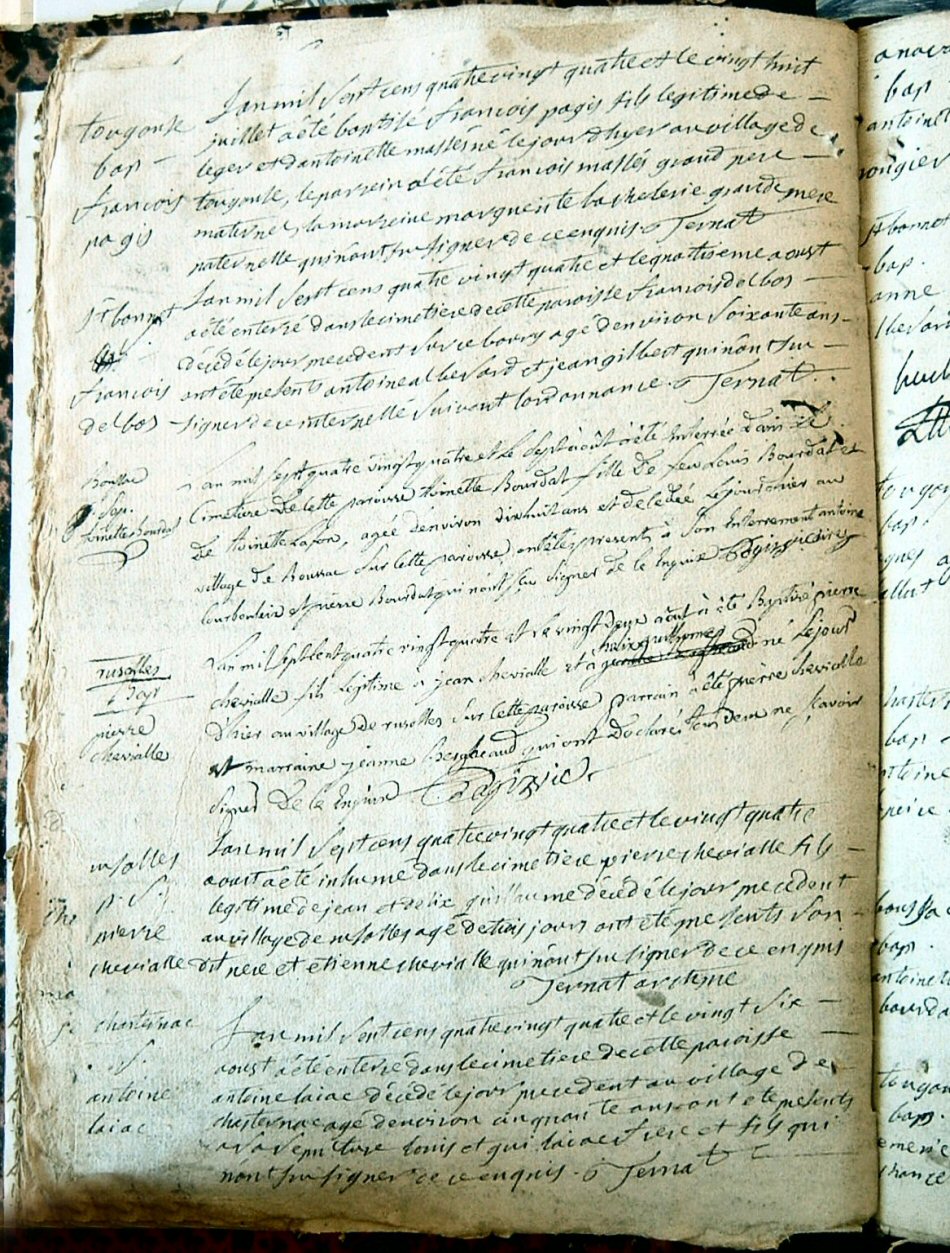 tougouse
bap
francois
pagis
Lan mil sept cens quatre vingt quatre et le vingt huit
juillet a été baptisé francois pagis fils legitime de
leger et dantoinette massés né le jour dhyer au village de
tougouse, le parrein a été francois massés grand pere
maternel, la marreine marguerite bachelerie grande mere
paternelle qui nont su signer de ce enquis. Ternat
st bonnet
francois
delbos
Lan mil sept cens quatre vingt quatre et le quatrieme aoust
a été enterré dans le cimetiere de cette paroisse francois delbos
décédé le jour precedent sur ce bourg agé denviron soixante ans
ont été presents antoine al besard et jean gilbert qui nont su
signer de ce interpellé suivant lordonnance. Ternat
Boussac
Sep.
toinette Bourdat
Lan mil sept quatre vingt quatre et le sept août a été Interrée dans le
Cimetiere de cette paroisse toinette Bourdat fille de feu Louis Bourdat et
de toinette Lafon, agée denviron dixhuit ans et decedée le jour dhier au
village de Boussac sur cette paroisse, ont étés presents à son Enterrement antoine
et pierre Bourdat qui nont su signer de ce Enquis
rusolles
Bap
pierre
chevialle
Lan mil sept cent quatre vingt quatre et le vingt deux août a été Baptisé pierre
chevialle fils legitime a jean chevialle et a helix guilhome né le jour
d'hier au village de rusolles sur cette paroisse parrain a été pierre chevialle
et marraine jeanne qui ont declaré ne sçavoir
signer De ce Enquis
rusolles
p. S.
pierre
chevialle
Lan mil sept cens quatre vingt quatre et le vingt quatre
aoust a été inhumé dans le cimetiere pierre chevialle fils
legitime de jean et delix guillaume décédé le jour precedent
au village de rusolles agé de trois jours ont été presents son
dit pere et etienne chevialle qui nont su signer de ce enquis
Ternat archipre
chasternac
S.
antoine
laiac
Lan mil sept cens quatre vingt quatre et le vingt six
aoust a été enterré dans le cimetiere de cette paroisse
antoine laiac décédé le jour precedent au village de
chasternac agé denviron cinquante ans ont été presents
a la sepulture louis et gui laiac frere et fils qui
nont su signer de ce enquis. Ternat
bap
antoinet
rougier
st bonnet
bap.
anne
bap.
bap
antoine
bap.
antoine
tougou
bap.